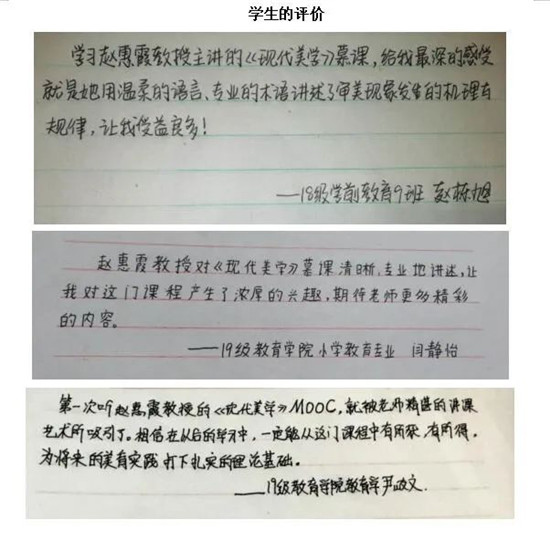 学生的评价
学习赵惠霞教授主讲的《现代美学》慕课，给我最深的感受
就是她用温柔的语言、专业的术语讲述了审美现象发生的机理与
规律，让我受益良多！
——18级学前教育9班 赵栋旭
赵惠霞教授对《现代美学》慕课清晰、专业地讲述，让
我对这门课程产生了浓厚的兴趣，期待老师更多精彩
的内容。
——19级教育学院小学教育专业 闫静怡
第一次听赵惠霞教授的《现代美学》MOOC，就被老师精湛的讲课
艺术所吸引了。相信在以后的学习中，一定能从这门课程中有所获，有所得，
为将来的美育实践打下扎实的理论基础。
——19级教育学院教育学尹政文